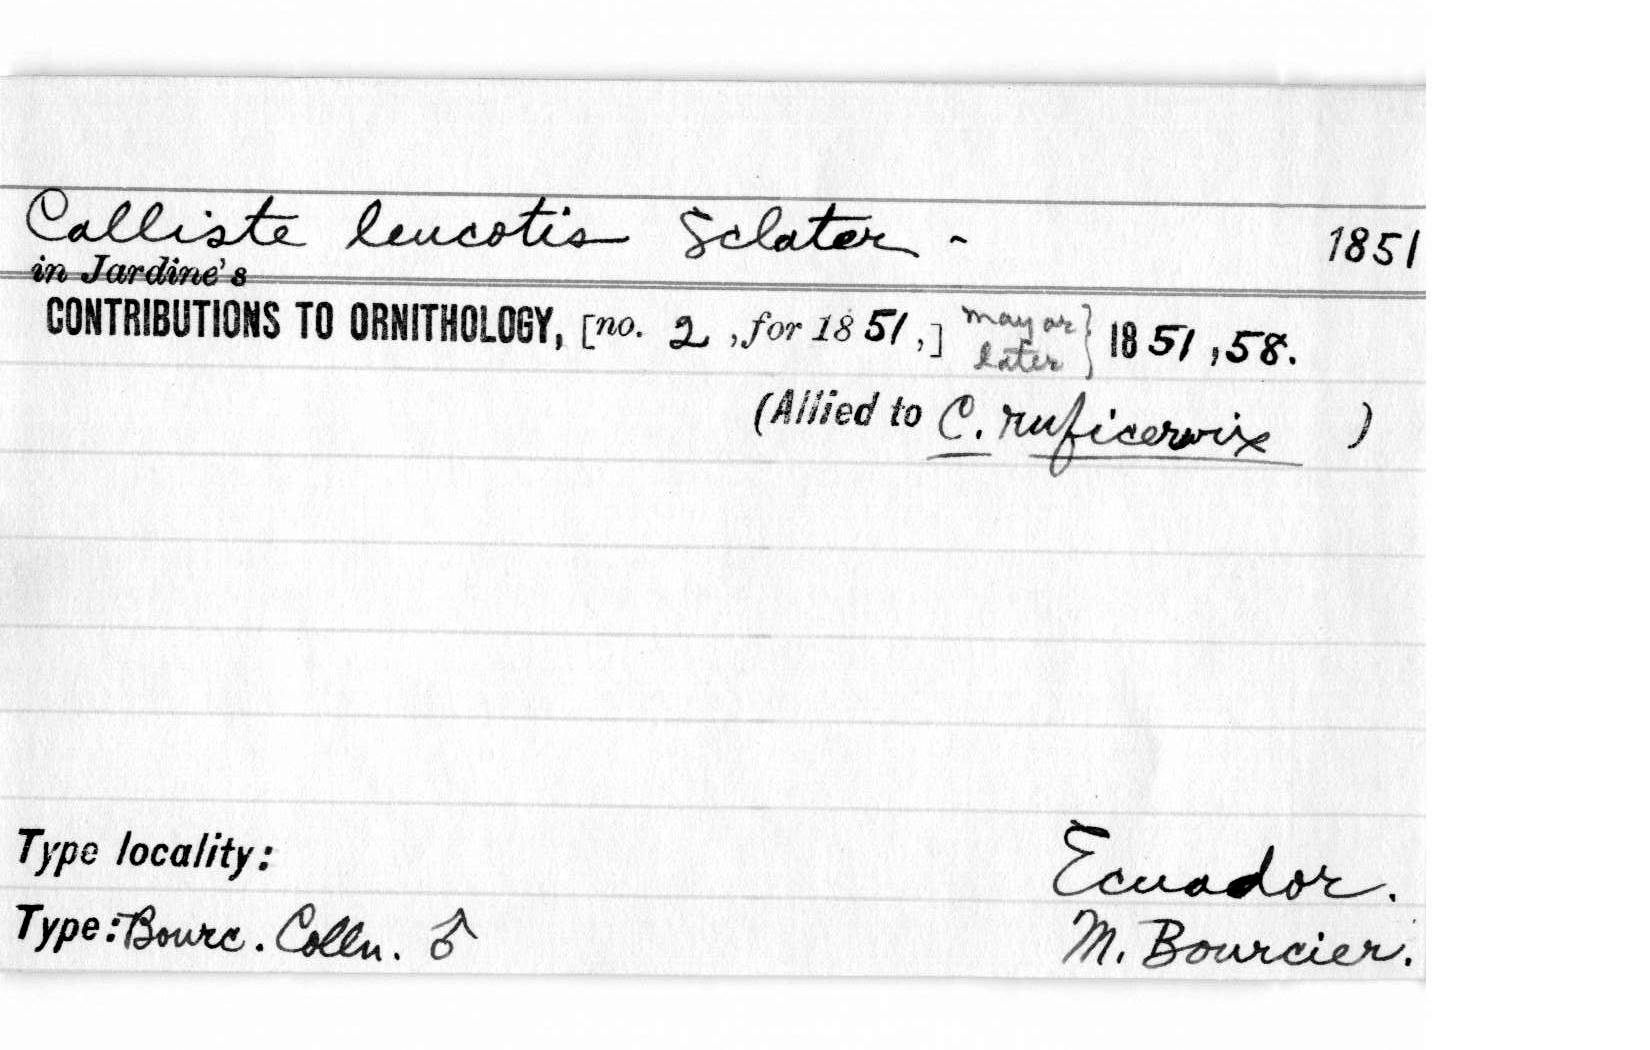 Calliste leucotis Sclater - 1851
in Jardine's
CONTRIBUTIONS TO ORNITHOLOGY, [no. 2, for 1851,] may or later} 1851, 58.
(Allied to C. ruficervix )
Type locality: Ecuador.
Type: Bourc. Colln. ♂ M. Bourcier.